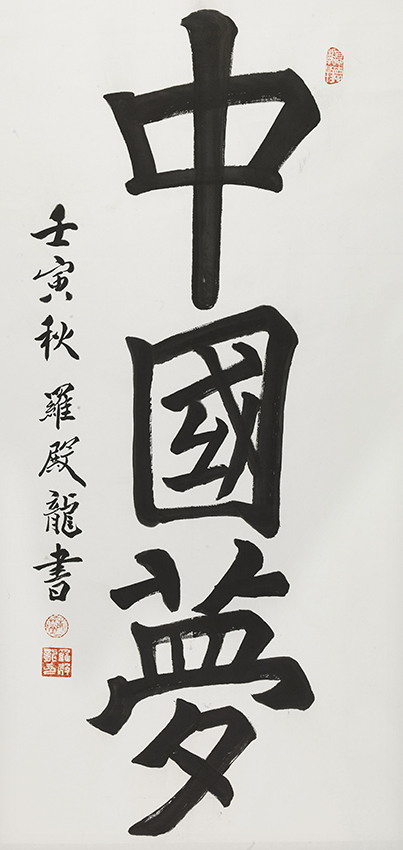 中國夢
壬寅秋 羅殿龍書